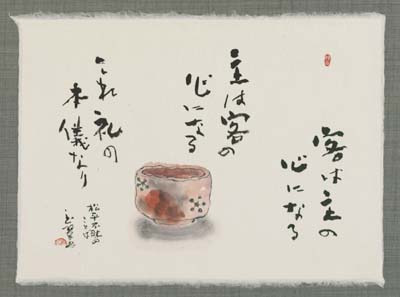 客は主の
心になる
主は客の
心になる
これ礼の
本儀なり
松平不昧の
ことば